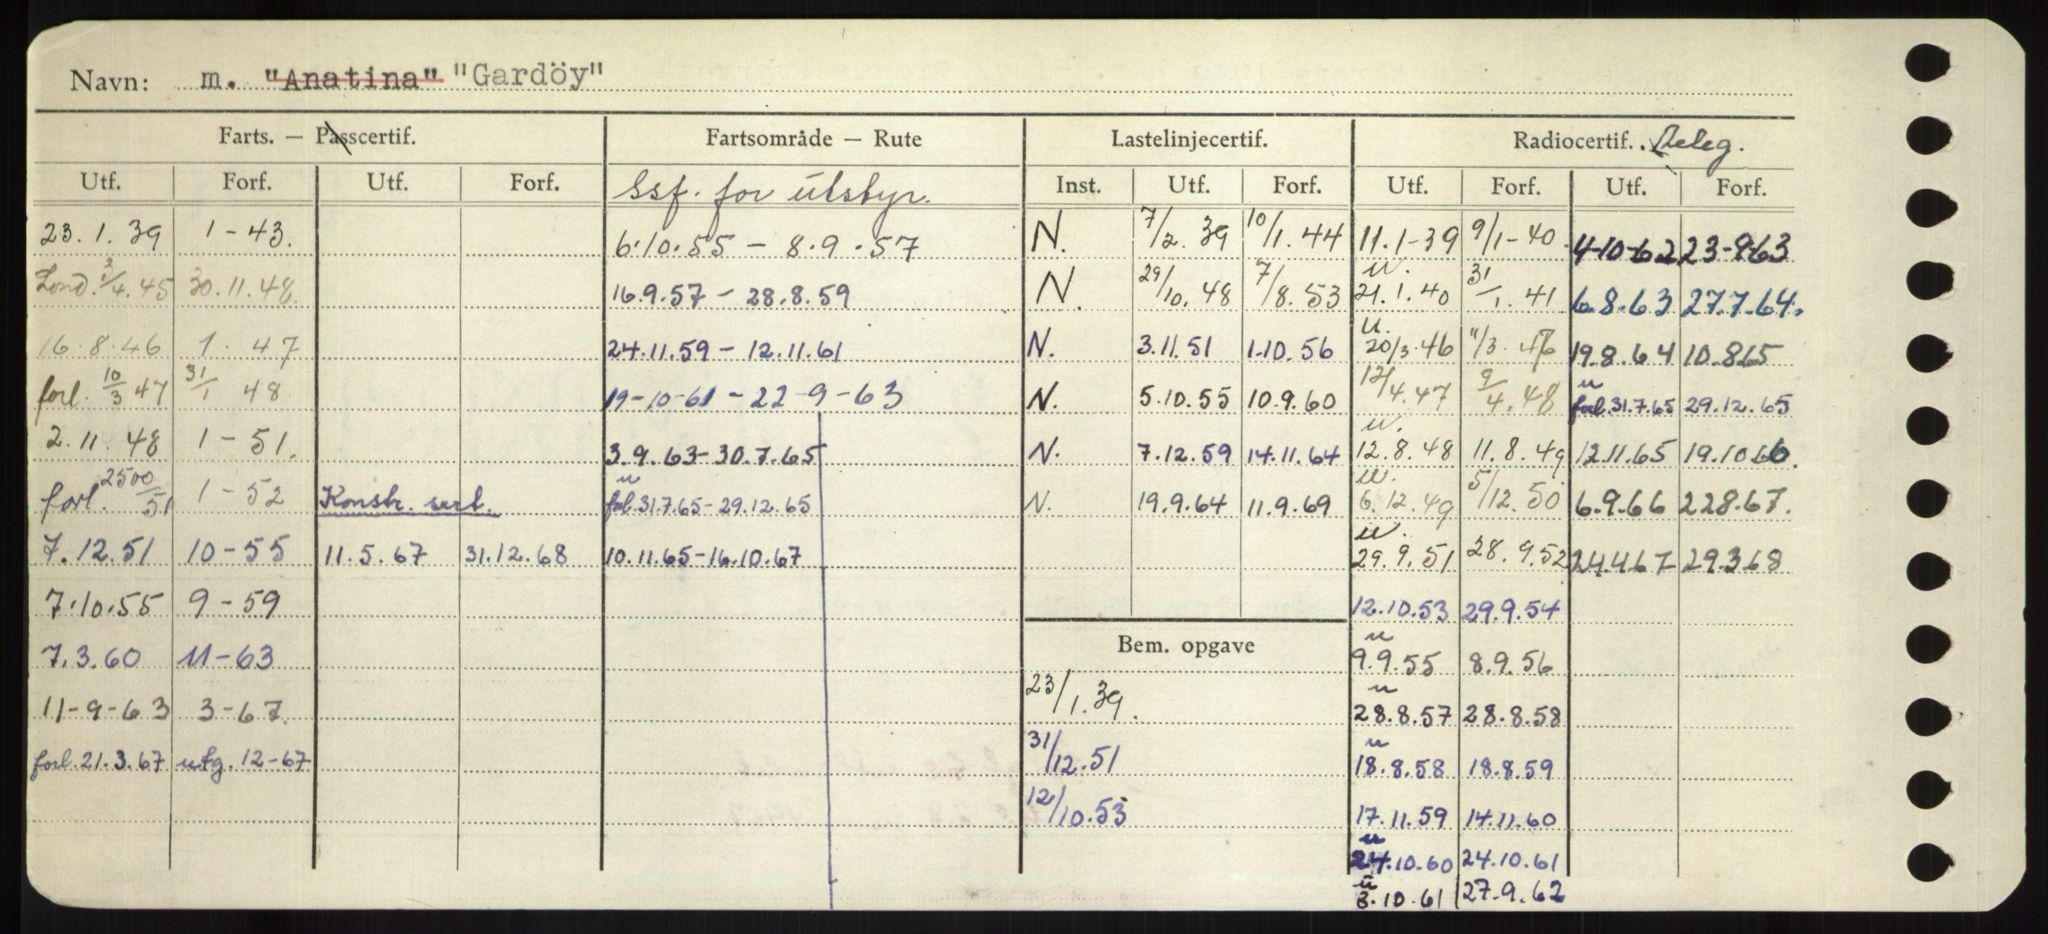 Navn: m. "Anatina" "Gardöy"
Farts. — Passcertif. Fartsområde — Rute Lastelinjecertif. Radiocertif. Teleg.
Utf. Forf. Utf. Forf. Ssf. for utstyr. Inst. Utf. Forf. Utf. Forf. Utf. Forf.
23.1.39 1-43. 6.10.55 - 8.9.57 N. 7/2.39 10/1.44 11.1-39 9/1-40 4-10-62 23-9-63
Lond. 3/4.45 30.11.48 16.9.57 - 28.8.59 N. 29/10.48 7/8.53 u. 21.1.40 31/1.41 6.8.63 27.7.64.
16.8.46 1. 47 24.11.59 - 12.11.61 N. 3.11.51 1-10.56 u. 20/3.46 11/3.47 19.8.64 10.8.65
forl. 10/3 47 31/1 48 19-10-61 - 22-9-63 N. 5.10.55 10.9.60 12/4.47 9/4.48 u forl. 31.7.65 29.12.65
2.11.48 1-51. 3.9.63-30.7.65 N. 7.12.59 14.11.64 u. 12.8.48 11.8.49 12.11.65 19.10.66.
forl. 2500/51 1-52 Konstr. sert. u forl. 31.7.65-29.12.65 N. 19.9.64 11.9.69 u. 6.12.49 5/12.50 6.9.66 22.8.67.
7.12.51 10-55 11.5.67 31.12.68 10.11.65-16.10.67 u. 29.9.51 28.9.52 24.4.67 29.3.68
7.10.55 9-59 12.10.53 29.9.54
7.3.60 11-63 Bem. opgave u 9.9.55 8.9.56
11-9-63 3-67. 23/1.39. u 28.8.57 28.8.58
forl. 21.3.67 utg. 12-67 31/12.51 u 18.8.58 18.8.59
12/10.53 17.11.59 14.11.60
u 24.10.60 24.10.61
u 3.10.61 27.9.62